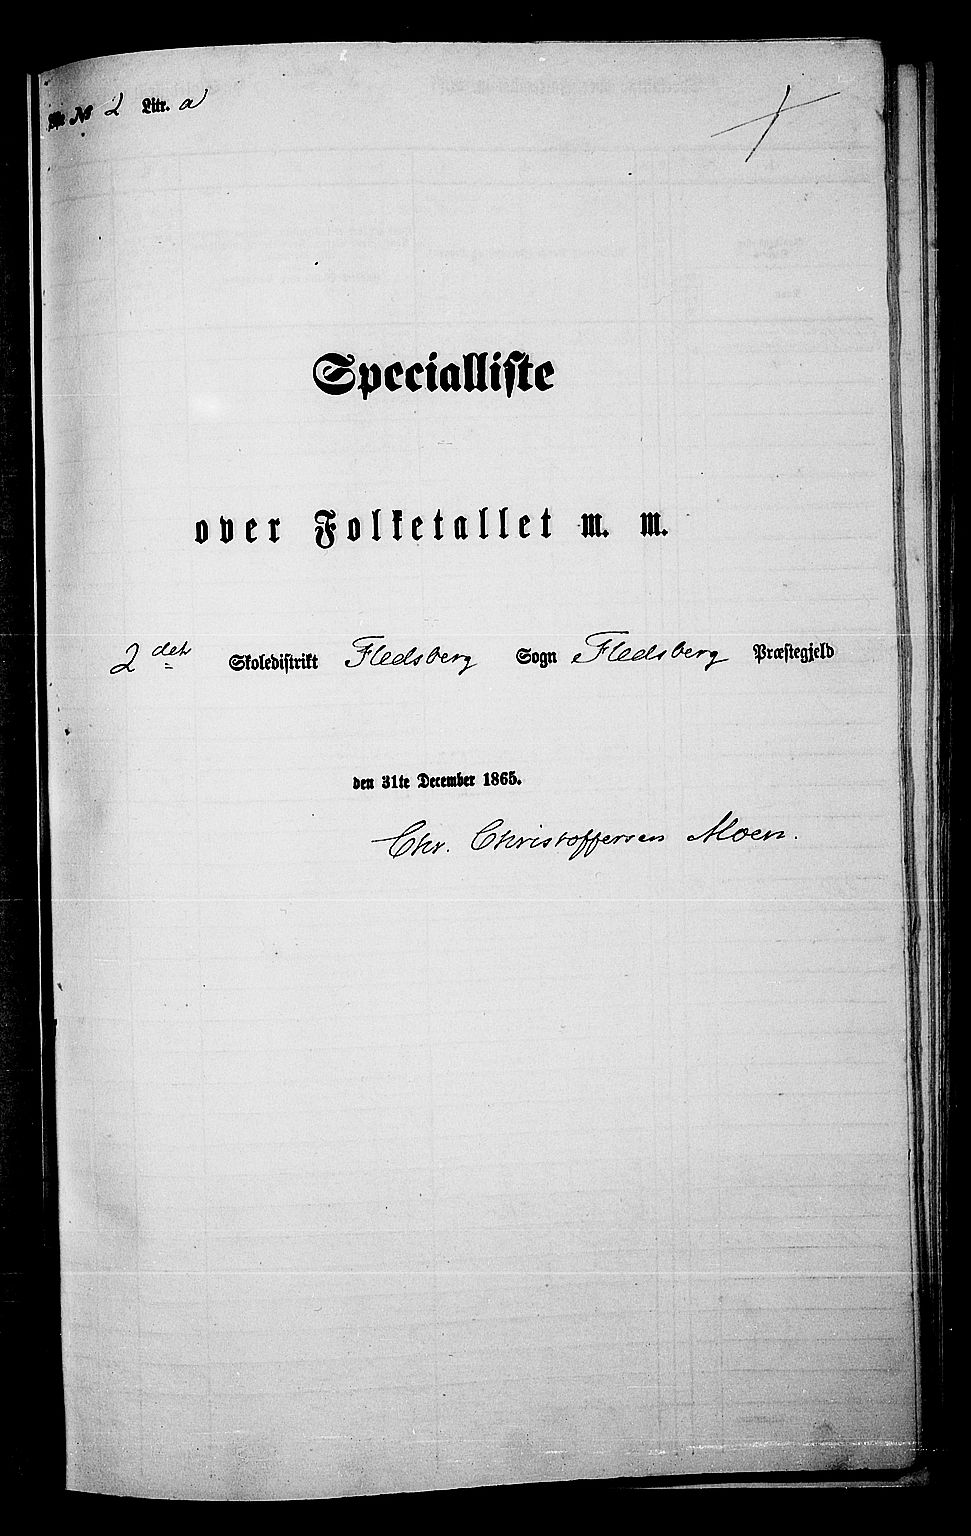 No 2 Litr. a
Specialliste
over Folketallet m. m.
2det Skoledistrikt Fledsberg Sogn Fledsberg Præstegjeld
den 31te December 1865.
Chr. Christoffersen Moen.